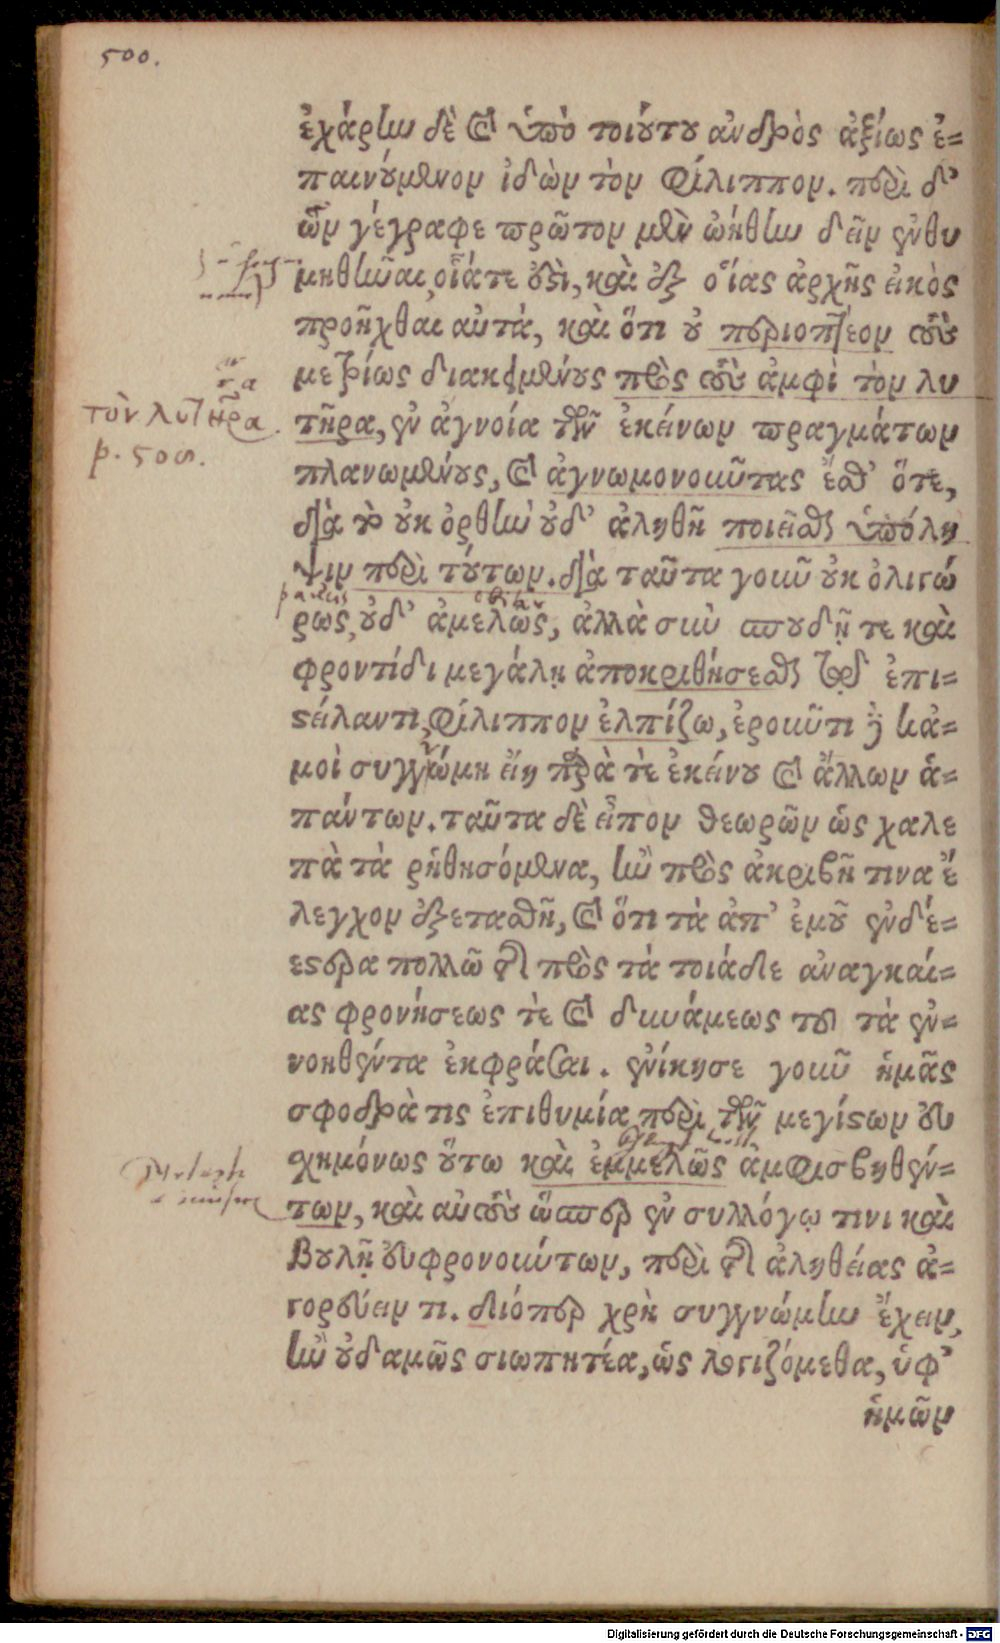 500.
ἐχάρην δὲ καὶ ὑπὸ τοιούτου ἀνδρὸς ἀξίως ἐ-
παινούμενον ἰδὼν τὸν Φίλιππον. περὶ δ’
ὧν γέγραφε πρῶτον μὲν ᾠήθην δεῖν ἐνθυ
μηθῆναι, οἷά τε ἐστὶ, καὶ ἐξ οἵας ἀρχῆς εἰκὸς
προῆχθαι αὐτὰ, καὶ ὅτι οὐ περιοπτέον τοὺς
μετρίως διακειμένους πρὸς τοὺς ἀμφὶ τὸν λυ
τὸν λυτῆρα.
p. 500.
τῆρα, ἐν ἀγνοίᾳ τῶν ἐκείνων πραγμάτων
πλανωμένους, καὶ ἀγνωμονοῦντας ἔσθ’ ὅτε,
διὰ τὸ οὐκ ὀρθὴν οὐδ’ ἀληθῆ ποιεῖσθαι ὑπόλη
ψιν περὶ τούτων. διὰ ταῦτα γοῦν οὐκ ὀλιγώ
ρως, οὐδ’ ἀμελῶς, ἀλλὰ σὺν σπουδῇ τε καὶ
φροντίδι μεγάλῃ ἀποκριθήσεσθαι τῷ ἐπι-
στείλαντι, Φίλιππον ἐλπίζω, ἐροῦντι ᾗ κἀ-
μοὶ συγγνώμη εἴη παρά τε ἐκείνου καὶ ἄλλων ἁ-
πάντων. ταῦτα δὲ εἶπον θεωρῶν ὡς χαλε
πὰ τὰ ῥηθησόμενα, ἢν πρὸς ἀκριβῆ τινα ἔ
λεγχον ἐξετασθῇ, καὶ ὅτι τὰ ἀπ’ ἐμοῦ ἐνδε-
έστερα πολλῷ τῆς πρὸς τὰ τοιάδε ἀναγκαί-
ας φρονήσεώς τε καὶ δυνάμεως τοῦ τὰ ἐν-
νοηθέντα ἐκφράσαι. ἐνίκησε γοῦν ἡμᾶς
σφοδρά τις ἐπιθυμία περὶ τῶν μεγίστων εὐ
σχημόνως οὕτω καὶ ἐμμελῶς ἀμφισβηθέν-
των, καὶ αὐτοὺς ὥσπερ ἐν συλλόγῳ τινι καὶ
βουλῇ εὐφρονούντων, περὶ τῆς ἀληθείας ἀ-
γορεύειν τι. διόπερ χρὴ συγγνώμην ἔχειν,
ἢν οὐδαμῶς σιωπητέα, ὡς λογιζόμεθα, ὑφ’
ἡμῶν
Digitalisierung gefördert durch die Deutsche Forschungsgemeinschaft - DFG